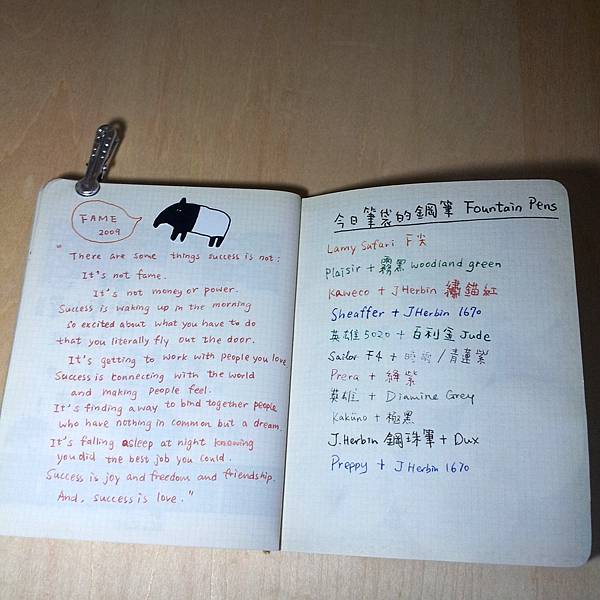 FAME
2009
" There are some things success is not:
It's not fame.
It's not money or power.
Success is waking up in the morning
so excited about what you have to do
that you literally fly out the door.
It's getting to work with people you love
Success is connecting with the world
and making people feel.
It's finding a way to bind together people
who have nothing in common but a dream.
It's falling asleep at night knowing
you did the best job you could.
Success is joy and freedom and friendship.
And, success is love."
今日筆袋的鋼筆 Fountain Pens
Lamy Safari F尖
Plaisir + 霧黑 woodland green
Kaweco + J Herbin 鏽錨紅
Sheaffer + J Herbin 1670
英雄 5020 + 百利金 Jude
Sailor F4 + / 青蓮紫
Prera + 絳紫
英雄 + Diamine Grey
Kaküno + 極黑
J. Herbin 鋼珠筆 + Dux
Preppy + J Herbin 1670